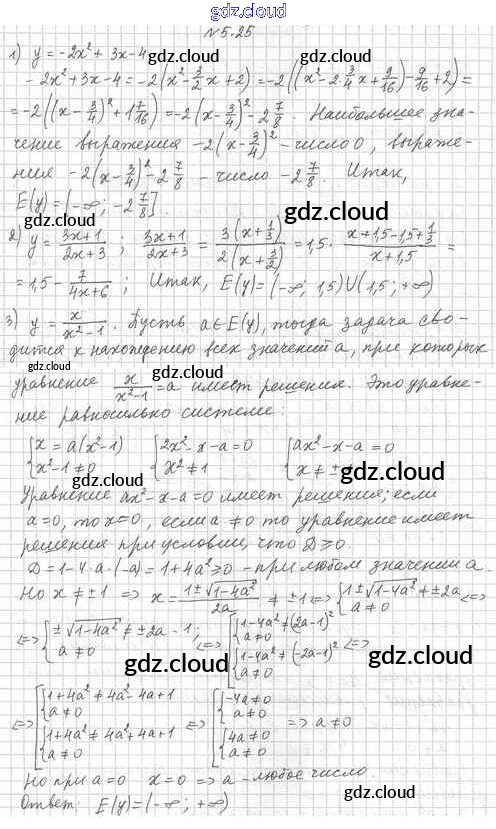 gdz.cloud
№5.25
1) y = -2x² + 3x - 4 gdz.cloud
-2x² + 3x - 4 = -2(x² - 3/2 x + 2) = -2((x² - 2·3/4 x + 9/16) - 9/16 + 2) =
= -2((x - 3/4)² + 1 7/16) = -2(x - 3/4)² - 2 7/8. Наибольшее зна-
чение выражения -2(x - 3/4)² - число 0, выраже-
ния -2(x - 3/4)² - 2 7/8 - число -2 7/8. Итак,
E(y) = (-∞; -2 7/8]
gdz.cloud gdz.cloud
2) y = (3x+1)/(2x+3); (3x+1)/(2x+3) = 3(x + 1/3)/2(x + 3/2) = 1,5 · (x + 1,5 - 1,5 + 1/3)/(x + 1,5) =
= 1,5 - 7/(4x+6); Итак, E(y) = (-∞; 1,5)∪(1,5; +∞)
gdz.cloud gdz.cloud
3) y = x/(x²-1). Пусть a∈E(y), тогда задача сво-
дится к нахождению всех значений a, при которых
gdz.cloud
уравнение x/(x²-1) = a имеет решения. Это уравне-
ние равносильно системе:
{x = a(x²-1) {2x² - x - a = 0 {ax² - x - a = 0
{x² - 1 ≠ 0 {x² ≠ 1 {x ≠ ±
gdz.cloud gdz.cloud
Уравнение ax² - x - a = 0 имеет решения, если
a = 0, то x = 0, если a ≠ 0 то уравнение имеет
решения при условии, что D ⩾ 0.
D = 1 - 4·a·(-a) = 1 + 4a² ⩾ 0 - при любом значении a.
gdz.cloud
Но x ≠ ±1 ⇒ x = (1 ± √(1-4a²))/2a ≠ ±1 ⇔ {1 ± √(1-4a²) ≠ ±2a ⇔
{a ≠ 0
⇔ {±√(1-4a²) ≠ ±2a - 1; ⇔ [{1-4a² ≠ (2a-1)² ⇔
{a ≠ 0 {a ≠ 0
{1-4a² ≠ (-2a-1)²
{a ≠ 0
gdz.cloud gdz.cloud
⇔ [{1+4a² ≠ 4a² - 4a + 1 ⇔ [{-4a ≠ 0 ⇒ a ≠ 0
{a ≠ 0 {a ≠ 0
{1+4a² ≠ 4a² + 4a + 1 {4a ≠ 0
{a ≠ 0 {a ≠ 0
gdz.cloud
Но при a = 0 x = 0 ⇒ a - любое число.
Ответ: E(y) = (-∞; +∞)
gdz.cloud gdz.cloud